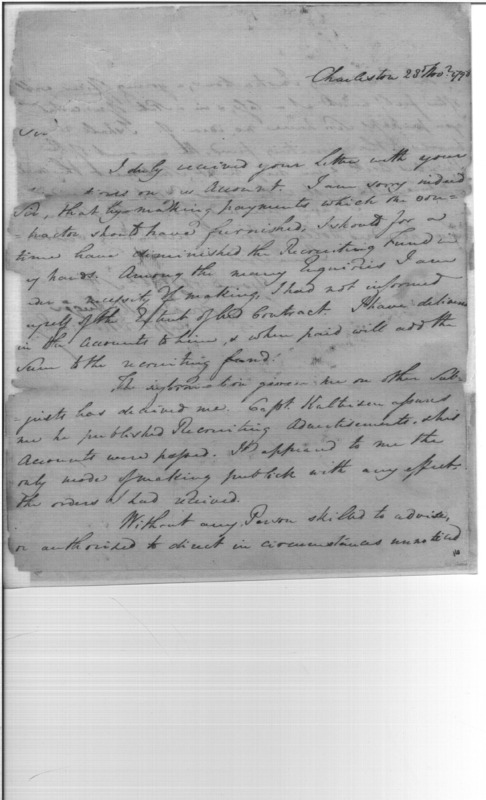 Charleston 23d Novr. 179
Sir
I duly received your Letter with your
on Account. I am sorry indeed
Sir, that by making payments which the con-
-tractor should have furnished, I should for a
time have diminished the Recruiting Fund in
my hands. Among the many Enquiries I am
necessity of making, I had not informed
myself of the Extent of his Contract I have delivered
in the Accounts to him, & when paid will add the
Sum to the recruiting fund.
The information given me on other Sub-
-jects has deceived me. Capt. assures
me he published Recruiting Advertisements, & his
Accounts were passed. It appeared to me the
only mode of making publick with any effect
the orders I had received.
Without any Person skilled to advise,
or authorized to direct in circumstances unnoticed